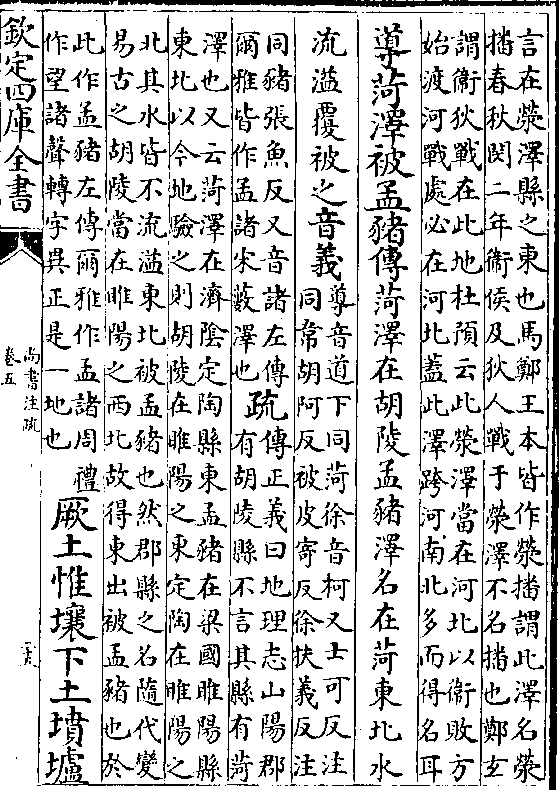 言在滎澤縣之東也馬鄭王本皆作滎播謂此澤名滎
播春秋閔二年衞侯及狄人戰于滎澤不名播也鄭玄
謂衞狄戰在此地杜預云此滎澤當在河北以衞敗方
始渡河戰處必在河北蓋此澤跨河南北多而得名耳
導菏澤被孟豬傳菏澤在胡陵孟豬澤名在菏東北水
流溢覆被之音義導音道下同菏徐音柯又士可反注
同韋胡阿反被皮寄反徐扶義反注
同豬張魚反又音諸左傳
爾雅皆作孟諸宋藪澤也疏傳正義曰地理志山陽郡
有胡陵縣不言其縣有菏
澤也又云菏澤在濟隂定陶縣東孟豬在梁國睢陽縣
東北以今地驗之則胡陵在睢陽之東定陶在睢陽之
北其水皆不流溢東北被孟豬也然郡縣之名隨代變
易古之胡陵當在睢陽之西北故得東出被孟豬也於
此作孟豬左傳爾雅作孟諸周禮
作望諸聲轉字異正是一地也厥土惟壤下土墳壚
欽定四庫全書
尚書注疏
卷五
二十六